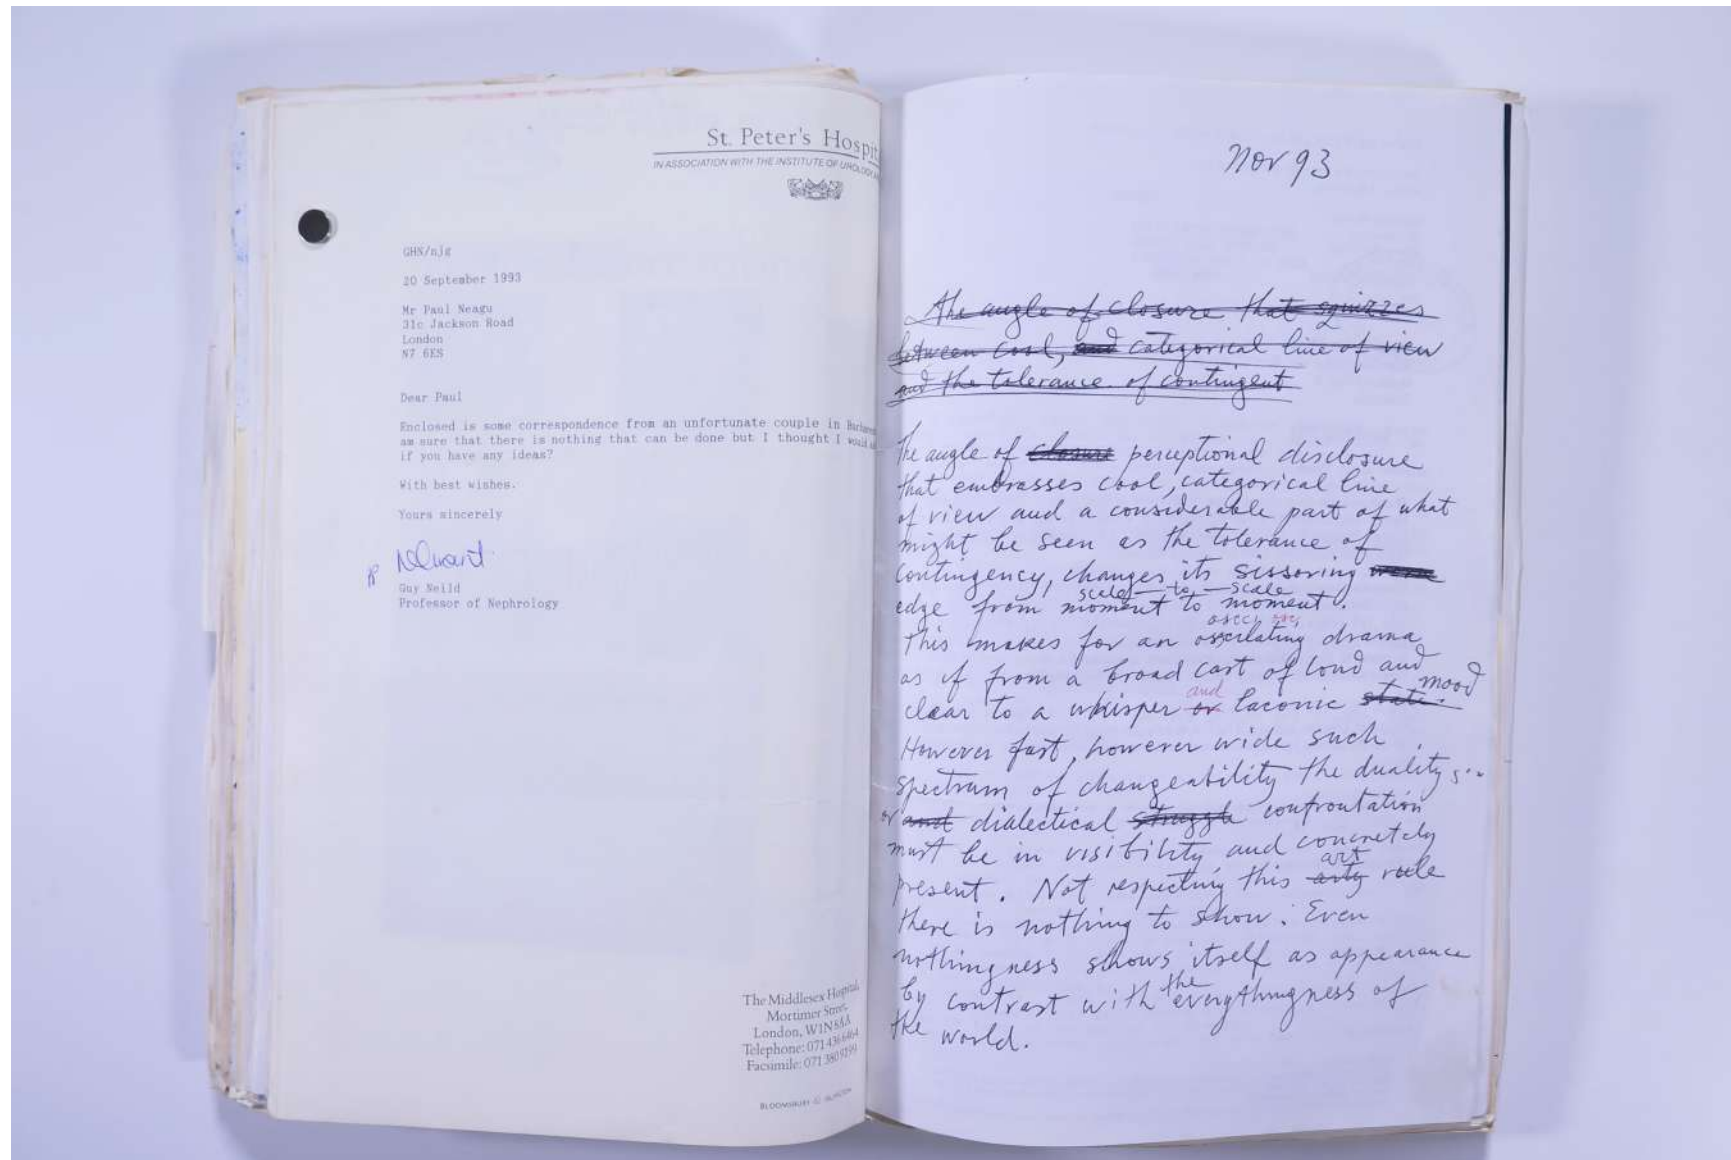 St. Peter's Hospit
IN ASSOCIATION WITH THE INSTITUTE OF UROLOGY
GHN/njg
20 September 1993
Mr Paul Neagu
31c Jackson Road
London
N7 6ES
Dear Paul
Enclosed is some correspondence from an unfortunate couple in
am sure that there is nothing that can be done but I thought I would
if you have any ideas?
With best wishes.
Yours sincerely
Guy Neild
Professor of Nephrology
The Middlesex Hospital,
Mortimer Street,
London, W1N 8AA
Telephone: 071 436 6464
Facsimile: 071 380 9199
BLOOMSBURY
Nov 93
The angle of closure that squizzes
between cool, and categorical line of view
and the tolerance of contingent
The angle of closure perceptional disclosure
that embrasses cool, categorical line
of view and a considerable part of what
might be seen as the tolerance of
contingency, changes its sissoring
scale — to — scale
edge from moment to moment.
This makes for an osscilating drama
as if from a broad cast of loud and
mood
and
clear to a whisper or laconic state.
However fast, however wide such
spectrum of changeability the duality
or and dialectical struggle confrontation
must be in visibility and concretely
art
present. Not respecting this arty rule
there is nothing to show. Even
nothingness shows itself as appearance
the
by contrast with everythingness of
the world.